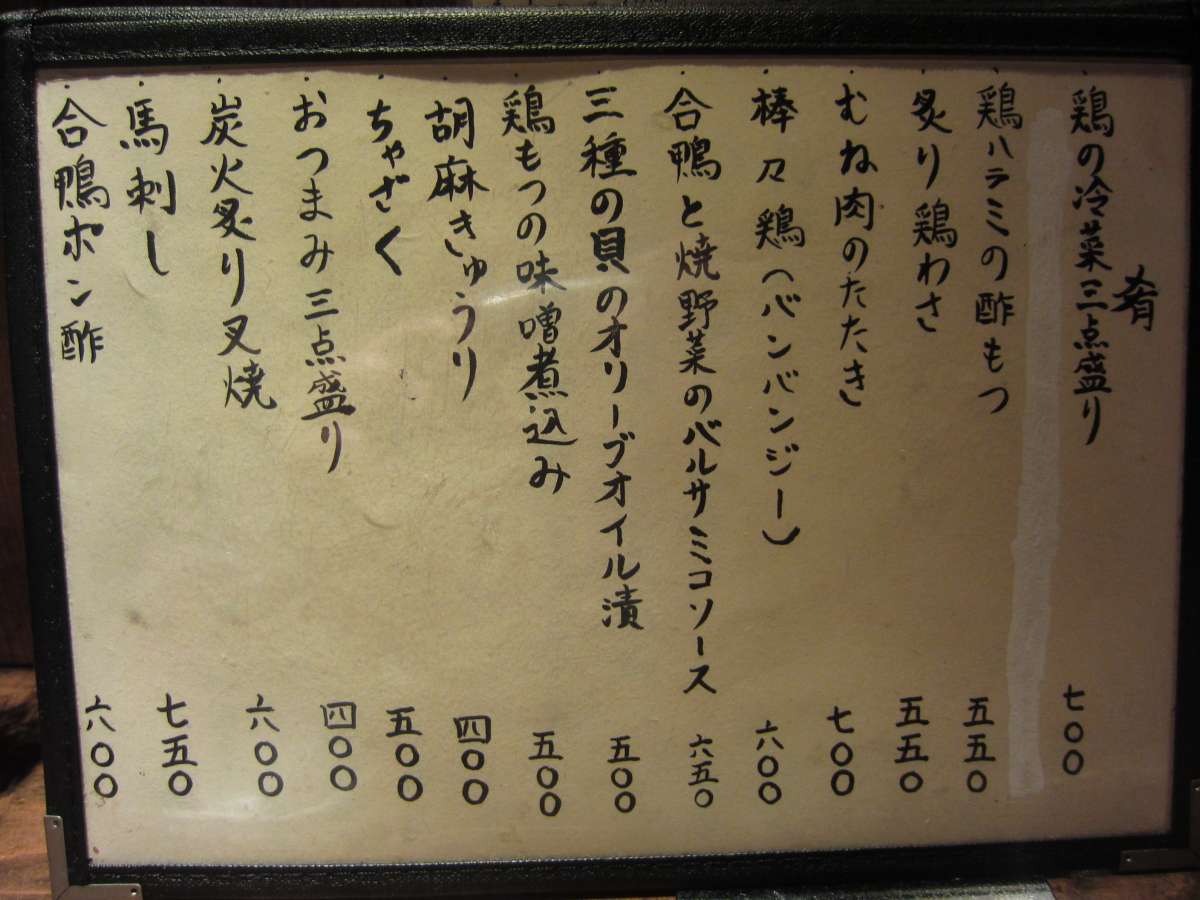 肴
鶏の冷菜三点盛り 七〇〇
鶏ハラミの酢もつ 五五〇
炙り鶏わさ 五五〇
むね肉のたたき 七〇〇
棒々鶏（バンバンジー） 六〇〇
合鴨と焼野菜のバルサミコソース 六五〇
三種の貝のオリーブオイル漬 五〇〇
鶏もつの味噌煮込み 五〇〇
胡麻きゅうり 四〇〇
ちゃざく 五〇〇
おつまみ三点盛り 四〇〇
炭火炙り叉焼 六〇〇
馬刺し 七五〇
合鴨ポン酢 六〇〇